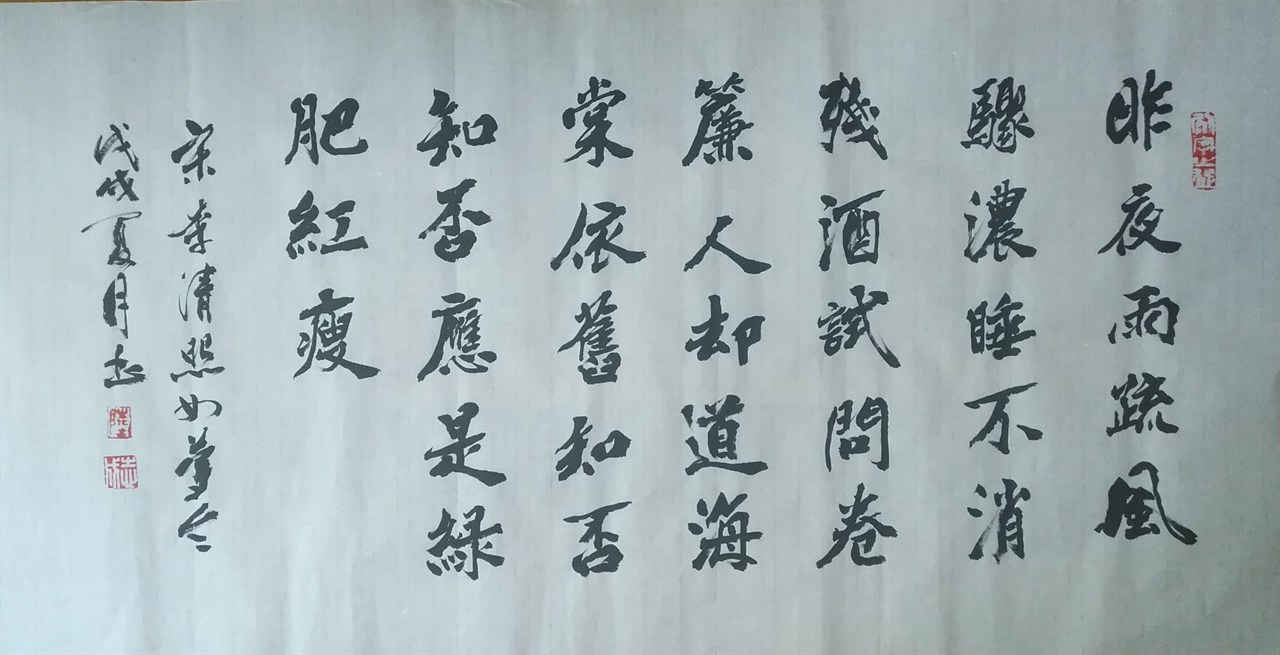 昨夜雨疏風
驟濃睡不消
殘酒試問卷
簾人却道海
棠依舊知否
知否應是綠
肥紅瘦
宋李清照如夢令
戊戌夏月志